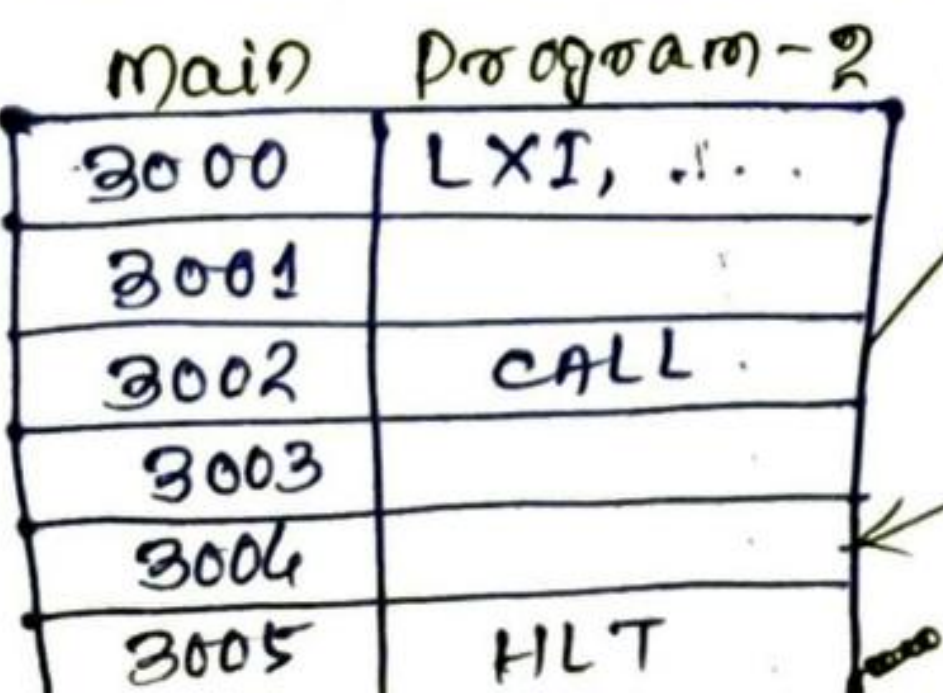 Main Program-2
3000 LXI, ....
3001
3002 CALL .
3003
3004
3005 HLT